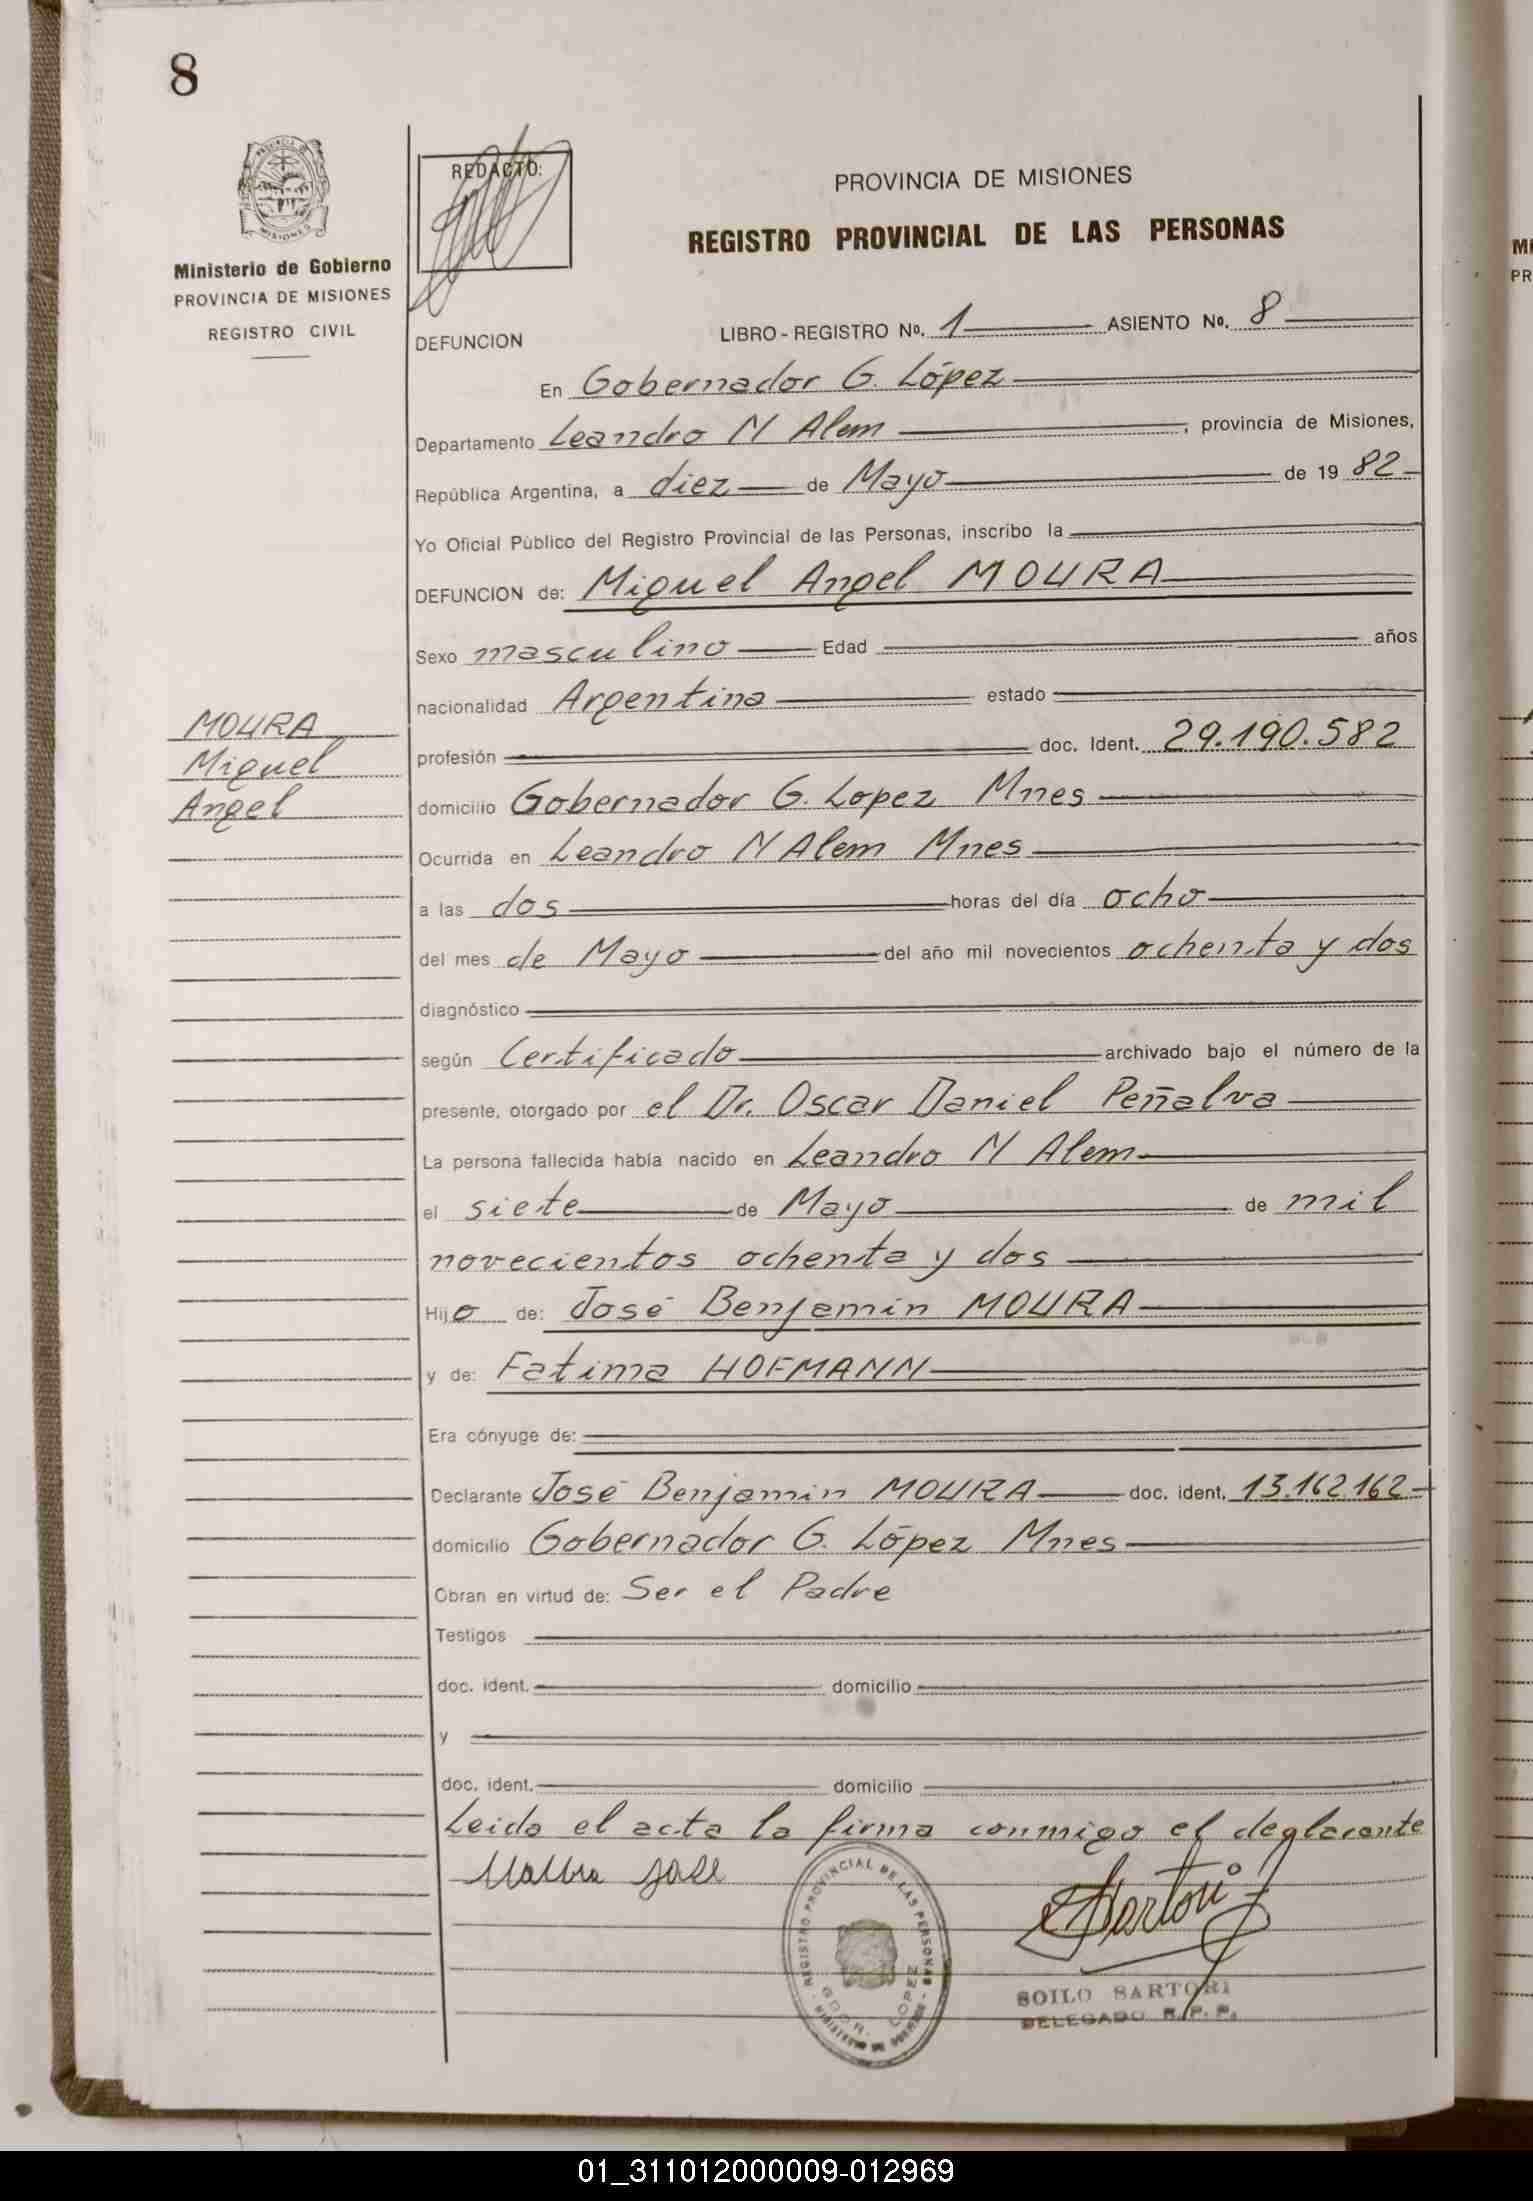 8
PROVINCIA DE
MISIONES
Ministerio de Gobierno
PROVINCIA DE MISIONES
REGISTRO CIVIL
REDACTO:
PROVINCIA DE MISIONES
REGISTRO PROVINCIAL DE LAS PERSONAS
DEFUNCION LIBRO - REGISTRO No. 1 ASIENTO No. 8
En Gobernador G. López
Departamento Leandro N Alem, provincia de Misiones,
República Argentina, a diez de Mayo de 19 82
Yo Oficial Público del Registro Provincial de las Personas, inscribo la
DEFUNCION de: Miguel Angel MOURA
Sexo masculino Edad años
nacionalidad Argentina estado
MOURA
Miguel
Angel
profesión doc. Ident. 29.190.582
domicilio Gobernador G. Lopez Mnes
Ocurrida en Leandro N Alem Mnes
a las dos horas del día ocho
del mes de Mayo del año mil novecientos ochenta y dos
diagnóstico
según Certificado archivado bajo el número de la
presente, otorgado por el Dr. Oscar Daniel Peñalva
La persona fallecida había nacido en Leandro N Alem
el siete de Mayo de mil
novecientos ochenta y dos
Hijo de: José Benjamin MOURA
y de: Fatima HOFMANN
Era cónyuge de:
Declarante José Benjamin MOURA doc. ident. 13.162.162
domicilio Gobernador G. López Mnes
Obran en virtud de: Ser el Padre
Testigos
doc. ident. domicilio
y
doc. ident. domicilio
Leida el acta la firma conmigo el deglarante
Moura José
REGISTRO PROVINCIAL DE LAS PERSONAS
GDOR. LOPEZ
Sartori
SOILO SARTORI
DELEGADO R. P. P.
MI
PR
01_311012000009-012969